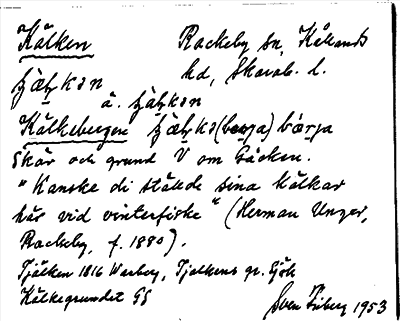 Kälken Rackeby sn, Kållands
hd, Skarab. l.
ä.
Kälkebergen
Skär och grund V om Gäcken.
"Kanske di ställde sina kälkar
här vid vinterfiske" (Herman Unger,
Rackeby, f. 1880).
Tjälken 1816 Warberg, Tjelkens gr. Gjök
Kälkegrundet GS
Sven Fiberg 1953